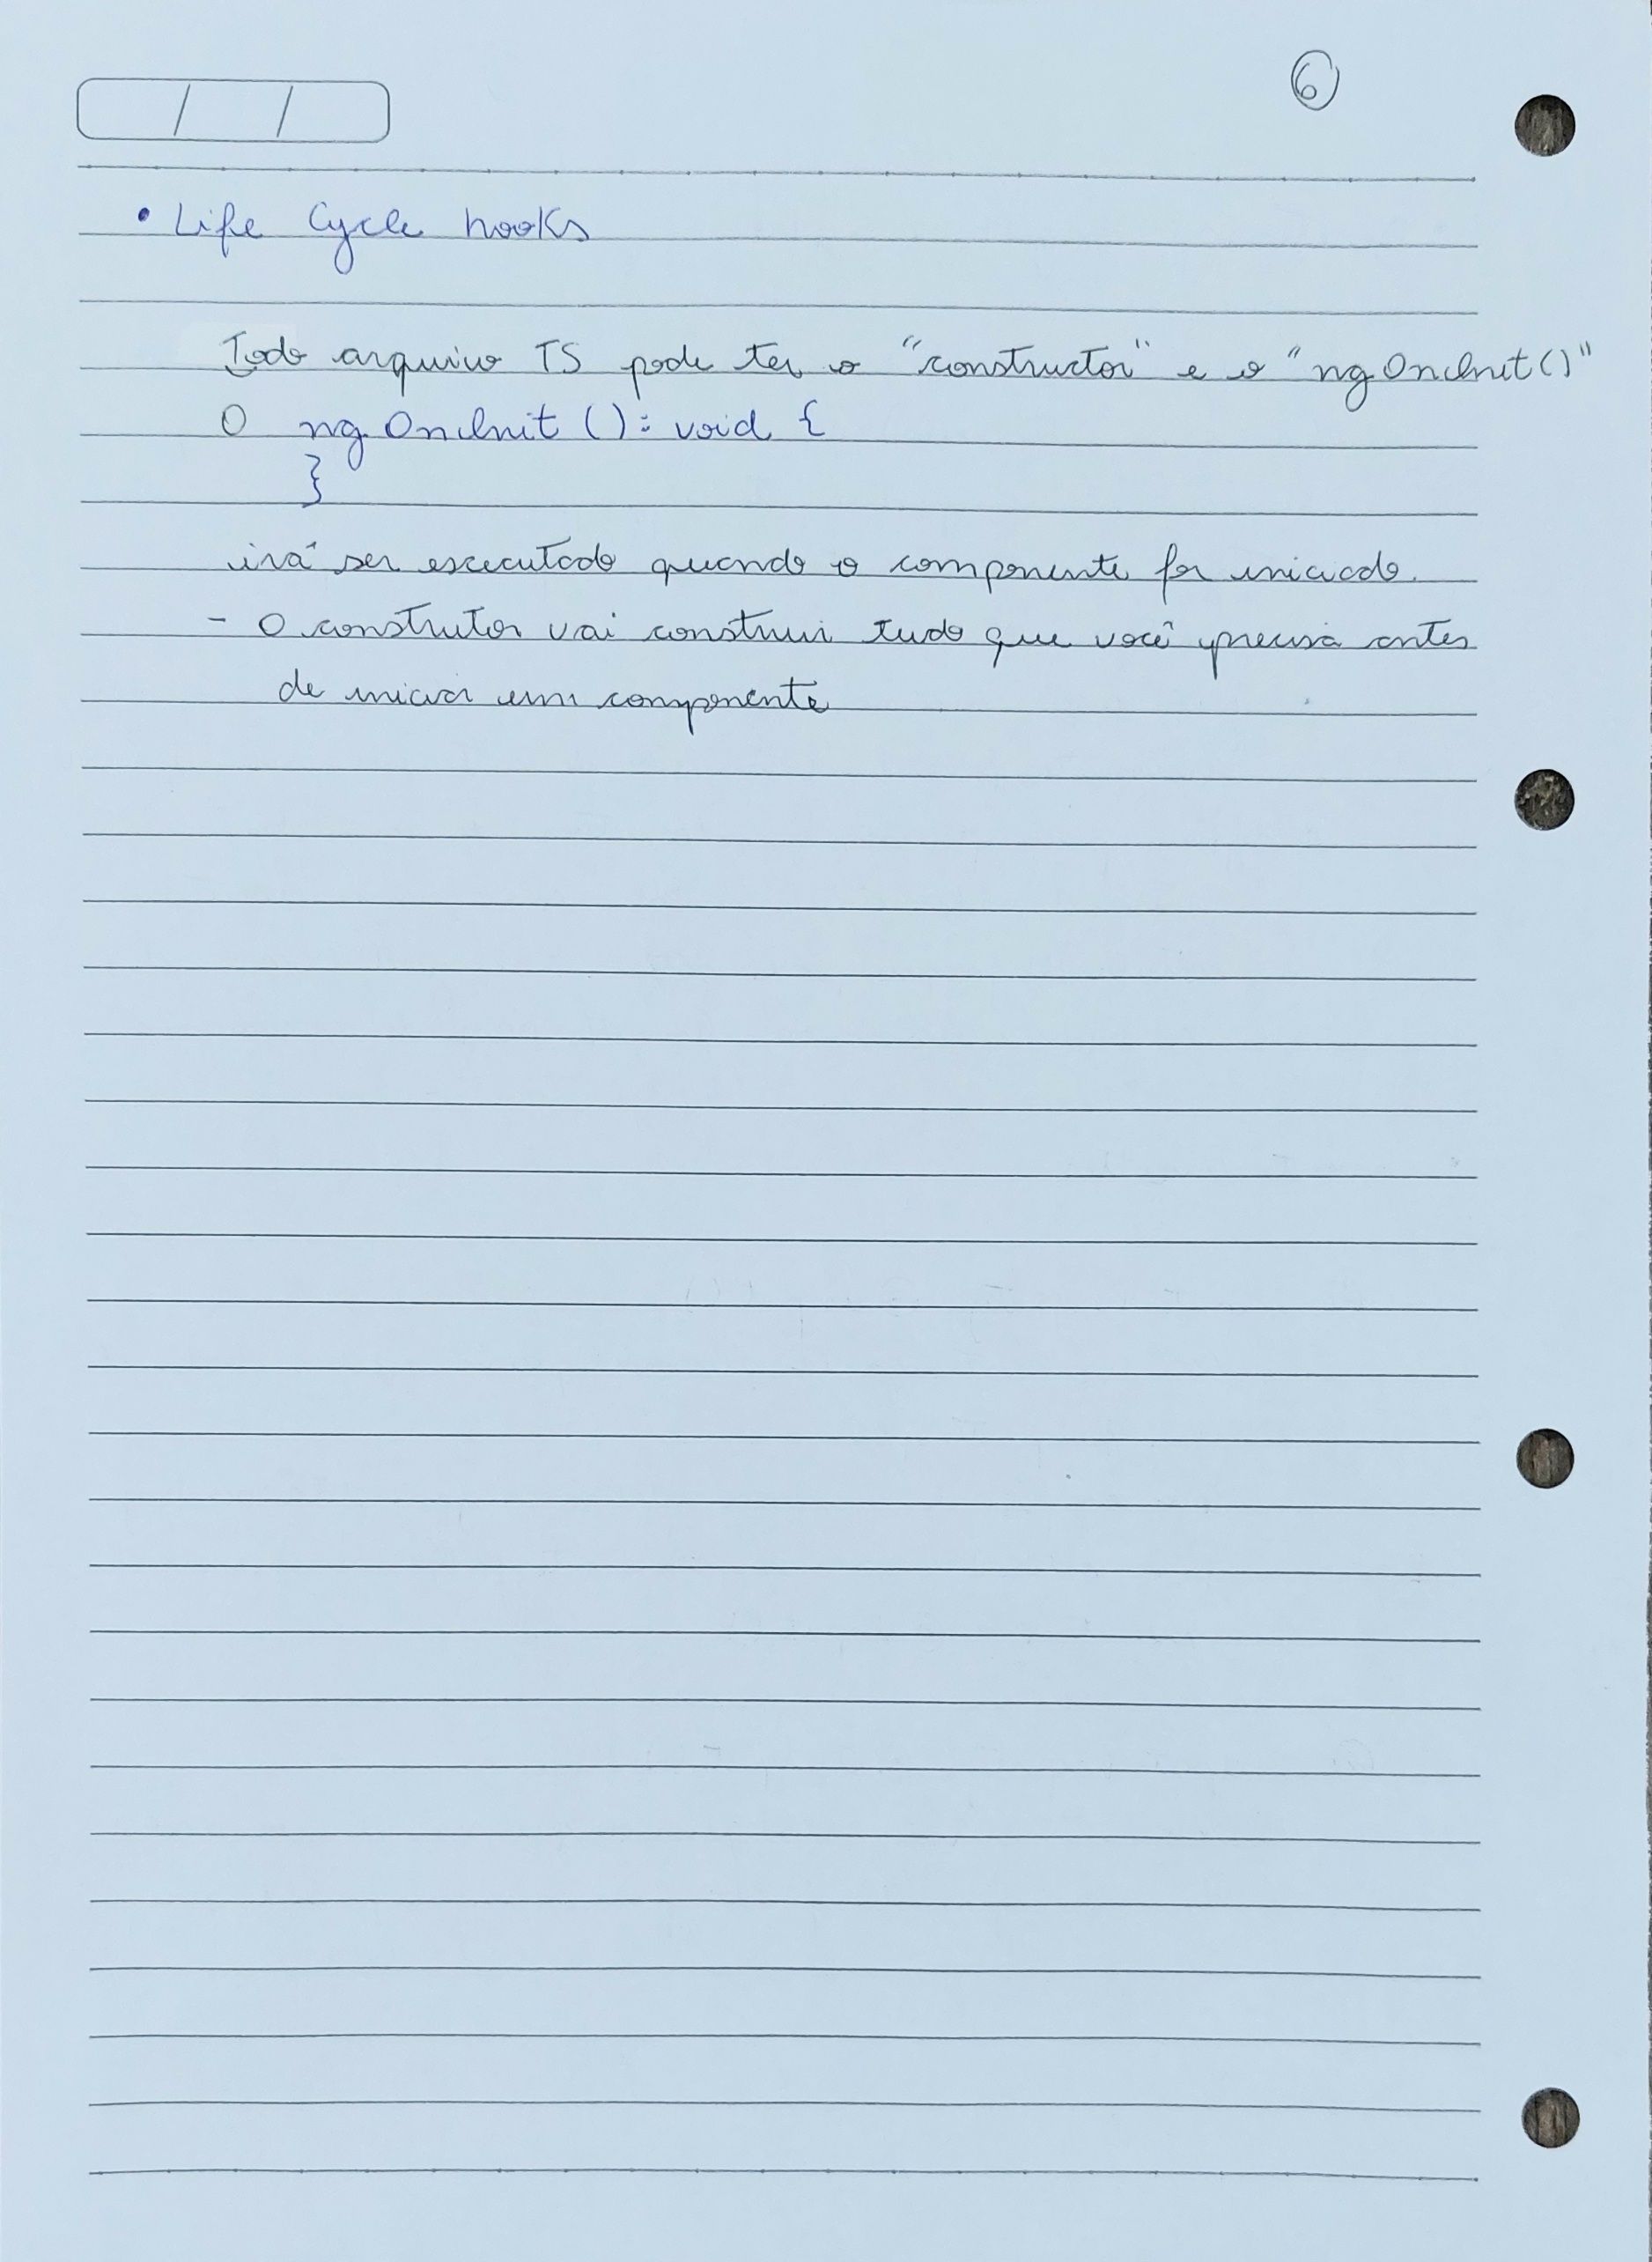 6
• Life Cycle hooks
Todo arquivo TS pode ter o "constructor" e o "ngOnInit()"
O ngOnInit (): void {
}
irá ser executado quando o componente for iniciado.
- O construtor vai construir tudo que você precisa antes
de iniciar um componente